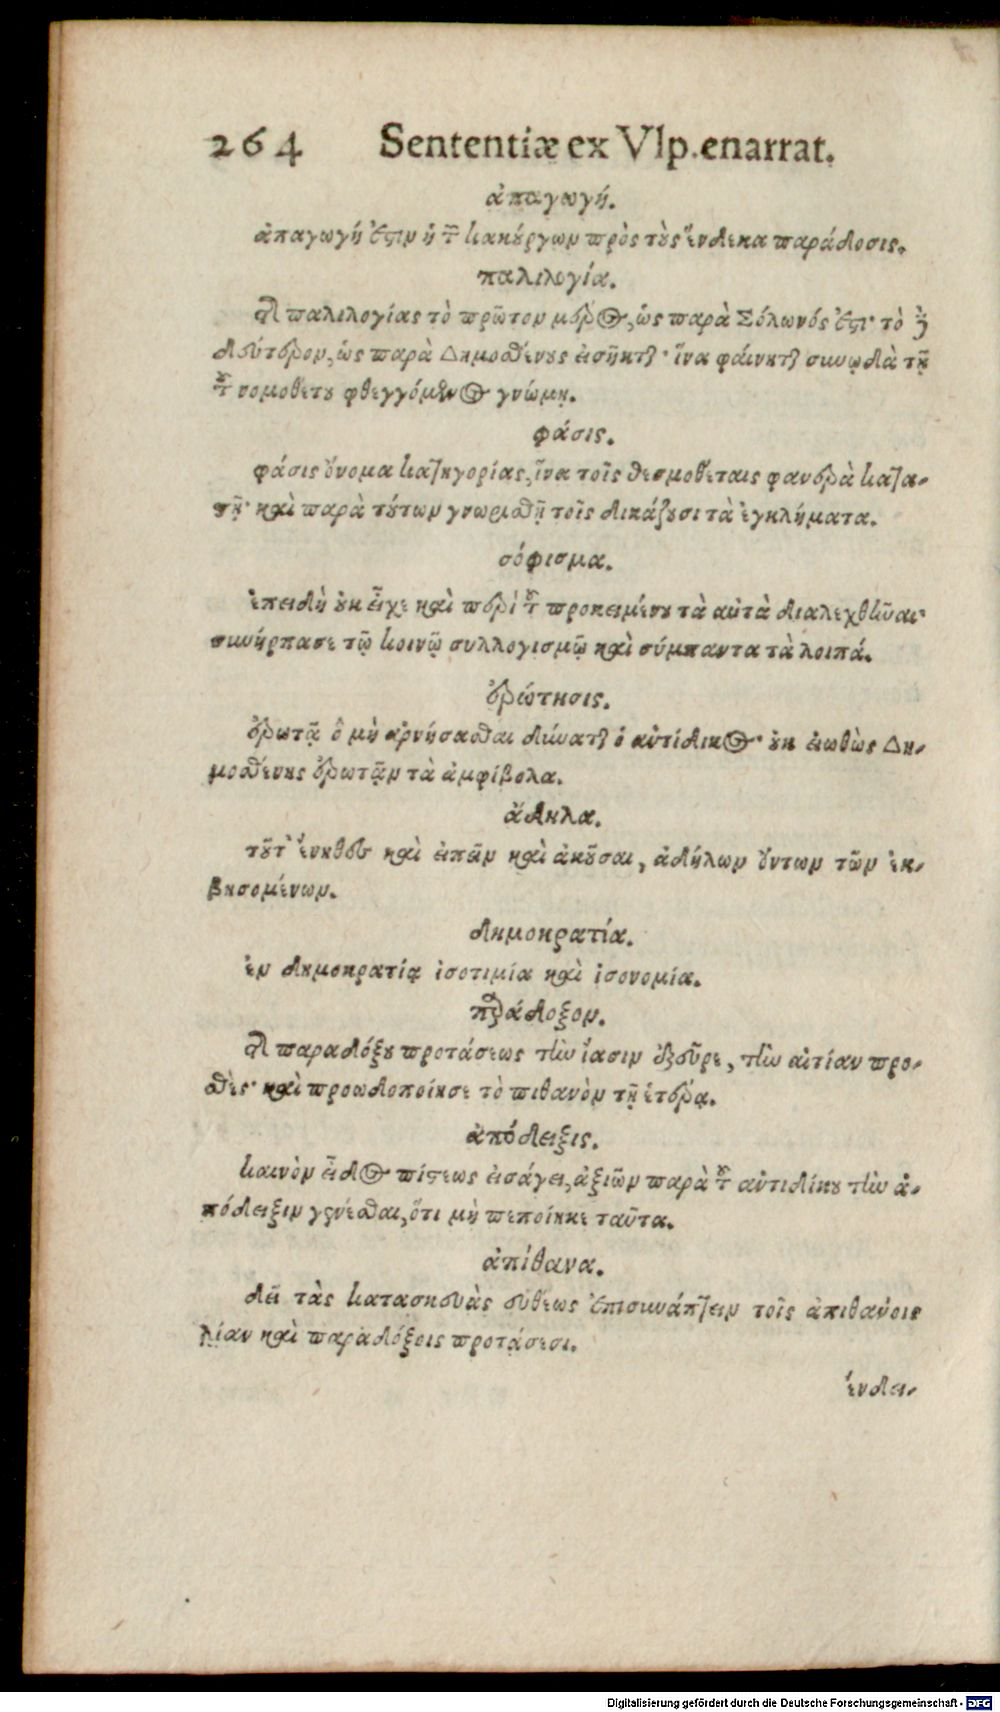 264 Sententiæ ex Vlp. enarrat.
ἀπαγωγή.
ἀπαγωγή ἐστιν ἡ τῶν κακούργων πρὸς τοὺς ἕνδεκα παράδοσις.
παλιλογία.
παλιλογίας τὸ πρῶτον μέρος, ὡς παρὰ Σόλωνός ἐστι· τὸ δὲ
δεύτερον, ὡς παρὰ Δημοσθένους εἰσῆκται· ἵνα φαίνηται συνῳδὰ τῇ
τοῦ νομοθέτου φθεγγόμενος γνώμῃ.
φάσις.
φάσις ὄνομα κατηγορίας, ἵνα τοῖς θεσμοθέταις φανερὰ κατα-
στῇ· καὶ παρὰ τούτων γνωρισθῇ τοῖς δικάζουσι τὰ ἐγκλήματα.
σόφισμα.
ἐπειδὴ οὐκ εἶχε καὶ περὶ τοῦ προκειμένου τὰ αὐτὰ διαλεχθῆναι·
συνήρπασε τῷ κοινῷ συλλογισμῷ καὶ σύμπαντα τὰ λοιπά.
ἐρώτησις.
ἐρωτᾷ ὃ μὴ ἀρνήσασθαι δύναται ὁ ἀντίδικος· οὐκ εἰωθὼς Δη-
μοσθένης ἐρωτᾷν τὰ ἀμφίβολα.
ἄδηλα.
καὶ εἰπεῖν καὶ ἀκοῦσαι, ἀδήλων ὄντων τῶν ἐκ-
βησομένων.
δημοκρατία.
ἐν δημοκρατίᾳ ἰσοτιμία καὶ ἰσονομία.
παράδοξον.
παραδόξου προτάσεως τὴν ἴασιν ἐξεῦρε, τὴν αἰτίαν προ-
θείς· καὶ προωδοποίησε τὸ πιθανὸν τῇ ἑτέρᾳ.
ἀπόδειξις.
καινὸν εἶδος πίστεως εἰσάγει, ἀξιῶν παρὰ τοῦ ἀντιδίκου τὴν ἀ-
πόδειξιν γενέσθαι, ὅτι μὴ πεποίηκε ταῦτα.
ἀπίθανα.
δεῖ τὰς κατασκευὰς εὐθέως ἐπισυνάπτειν τοῖς ἀπιθάνοις
λίαν καὶ παραδόξοις προτάσεσι.
ἔνδει-
Digitalisierung gefördert durch die Deutsche Forschungsgemeinschaft - DFG